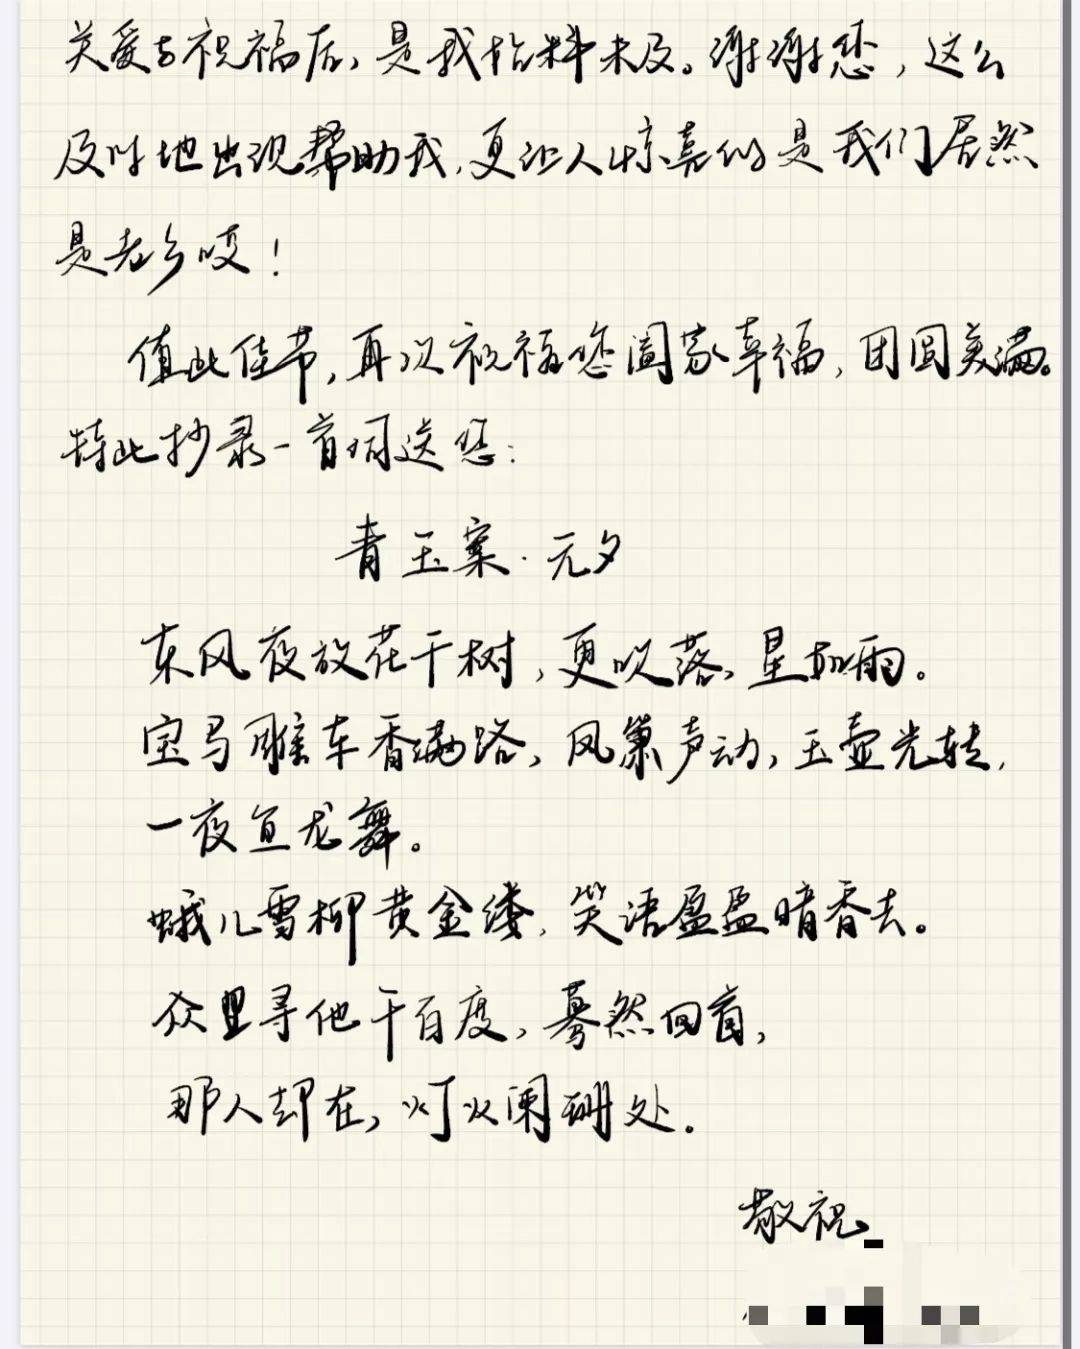 关爱与祝福后,是我始料未及。谢谢您,这么
及时地出现帮助我,更让人惊喜的是我们居然
是老乡哎!
值此佳节,再次祝福您阖家幸福,团圆美满。
特此抄录一首词送您:
青玉案·元夕
东风夜放花千树,更吹落,星如雨。
宝马雕车香满路,凤箫声动,玉壶光转,
一夜鱼龙舞。
蛾儿雪柳黄金缕,笑语盈盈暗香去。
众里寻他千百度,蓦然回首,
那人却在,灯火阑珊处。
敬祝